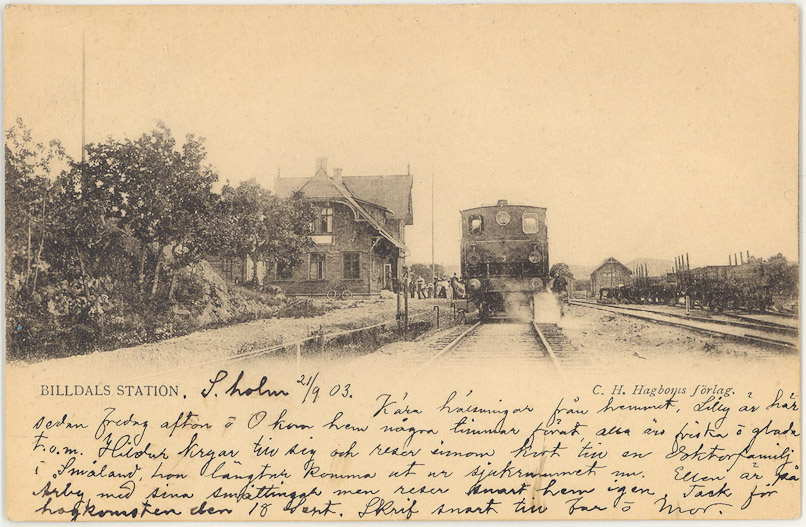 BILLDALS STATION. S.holm 21/9 03. C. H. Hagboms förlag.
Kära hälsningar från hemmet, Lilly är här
sedan fredag afton ö O kom hem några timmar förut, alla äro friska ö glada
t.o.m. Hildur kryar till sig och reser inom kort till en Doktorfamilj
i Småland, hon längtar komma ut ur sjukrummet nu. Ellen är på
Arby med sina småttingar men reser snart hem igen Tack för
hogkomsten den 18 Sept. Skrif snart till Far ö Mor.